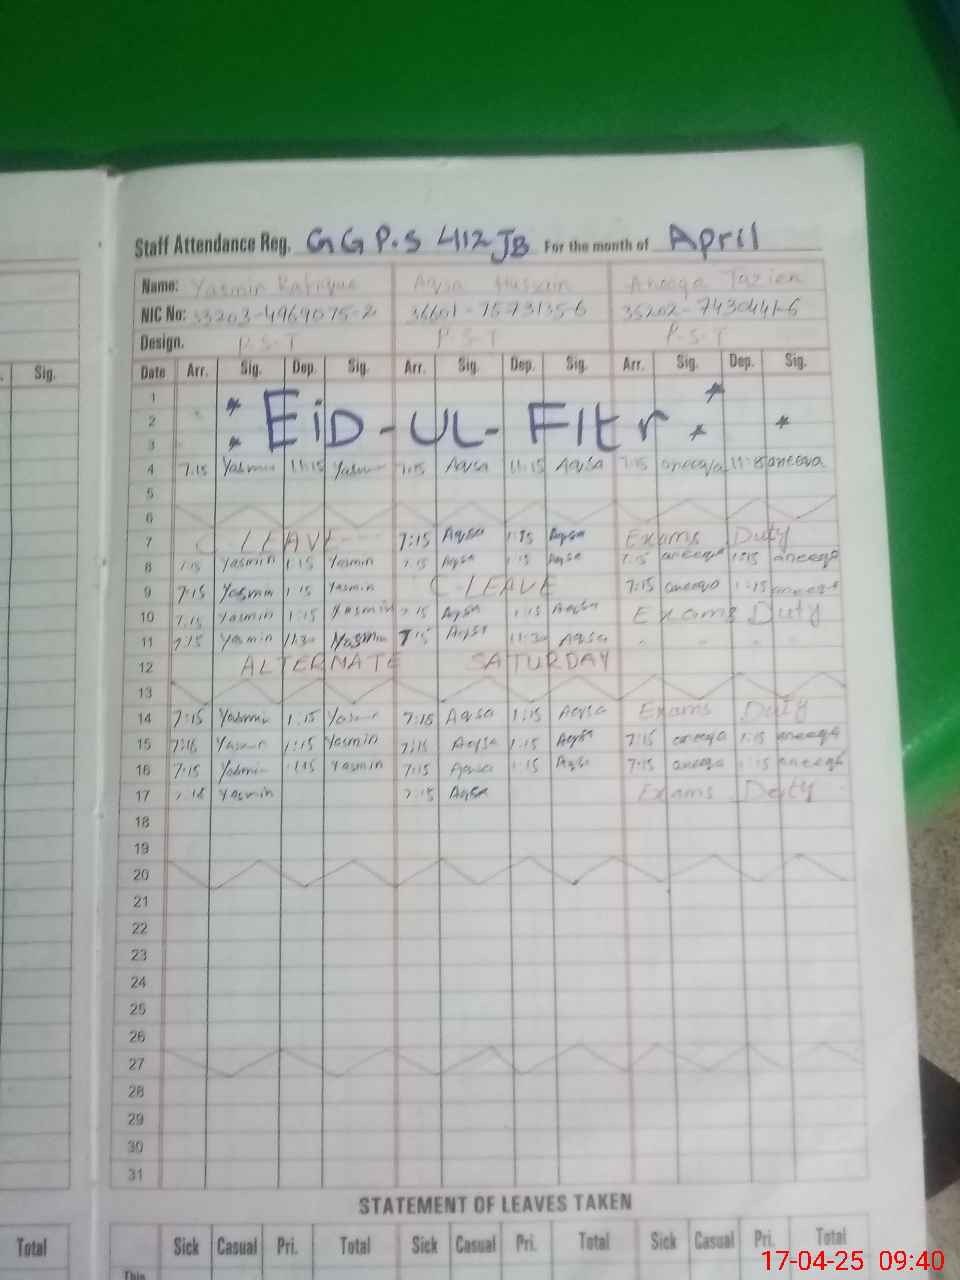 Staff Attendance Reg. GGP.S 412 JB For the month of April
Name: Yasmin Rafique Aqsa Hussain Aneeqa
NIC No: 33203-4964075-2 36601-7573135-6 35202-7430441-6
Design. P.S.T P.S.T P.S.T
Sig. Date Arr. Sig. Dep. Sig. Arr. Sig. Dep. Sig. Arr. Sig. Dep. Sig.
1
2 Eid-UL-Fitr
3
4 7.15 Yasmin 11:15 Yasmin 7:15 Aqsa 11:15 Aqsa 7:15 aneeqa aneeqa
5
6
7 C LEAVE 7:15 Aqsa 1:15 Aqsa Exams Duty
8 7:15 Yasmin 1:15 Yasmin 7:15 Aqsa 1:15 Aqsa 7:15 aneeqa 1:15 aneeqa
9 7:15 Yasmin 1:15 Yasmin C-LEAVE 7:15 aneeqa 1:15 aneeqa
10 7.15 Yasmin 1:15 Yasmin 7:15 Aqsa 1:15 Aqsa Exams Duty
11 7:15 Yasmin 11:30 Yasmin 7:15 Aqsa 11:30 Aqsa
12 ALTERNATE SATURDAY
13
14 7:15 Yasmin 1:15 Yasmin 7:15 Aqsa 1:15 Aqsa Exams Duty
15 7:15 Yasmin 1:15 Yasmin 7:15 Aqsa 1:15 Aqsa 7:15 aneeqa 1:15 aneeqa
16 7:15 Yasmin 1:15 Yasmin 7:15 Aqsa 1:15 Aqsa 7:15 aneeqa 1:15 aneeqa
17 Yasmin 7:15 Aqsa Exams Duty
18
19
20
21
22
23
24
25
26
27
28
29
30
31
STATEMENT OF LEAVES TAKEN
Total Sick Casual Pri. Total Sick Casual Pri. Total Sick Casual Pri. Total
This
17-04-25 09:40